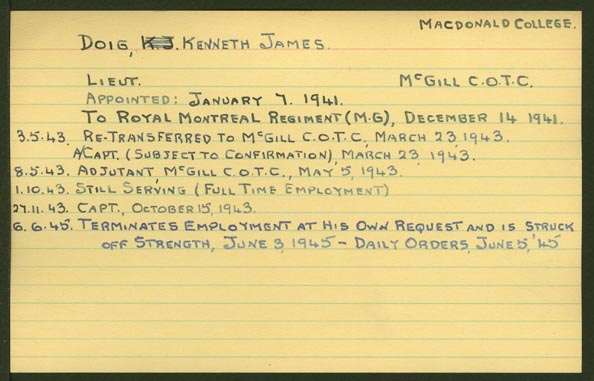 MACDONALD COLLEGE.
DOIG, K J. KENNETH JAMES.
LIEUT. McGILL C.O.T.C.
APPOINTED: JANUARY 7. 1941.
TO ROYAL MONTREAL REGIMENT (M.G), DECEMBER 14 1941.
3.5.43. RE-TRANSFERRED TO McGILL C.O.T.C, MARCH 23, 1943.
A/CAPT. (SUBJECT TO CONFIRMATION), MARCH 23, 1943.
8.5.43. ADJUTANT, McGILL C.O.T.C., MAY 5, 1943.
1.10.43. STILL SERVING (FULL TIME EMPLOYMENT)
27.11.43. CAPT., OCTOBER 15, 1943.
6.6.45. TERMINATES EMPLOYMENT AT HIS OWN REQUEST AND IS STRUCK
OFF STRENGTH, JUNE 3, 1945 - DAILY ORDERS, JUNE 5, '45